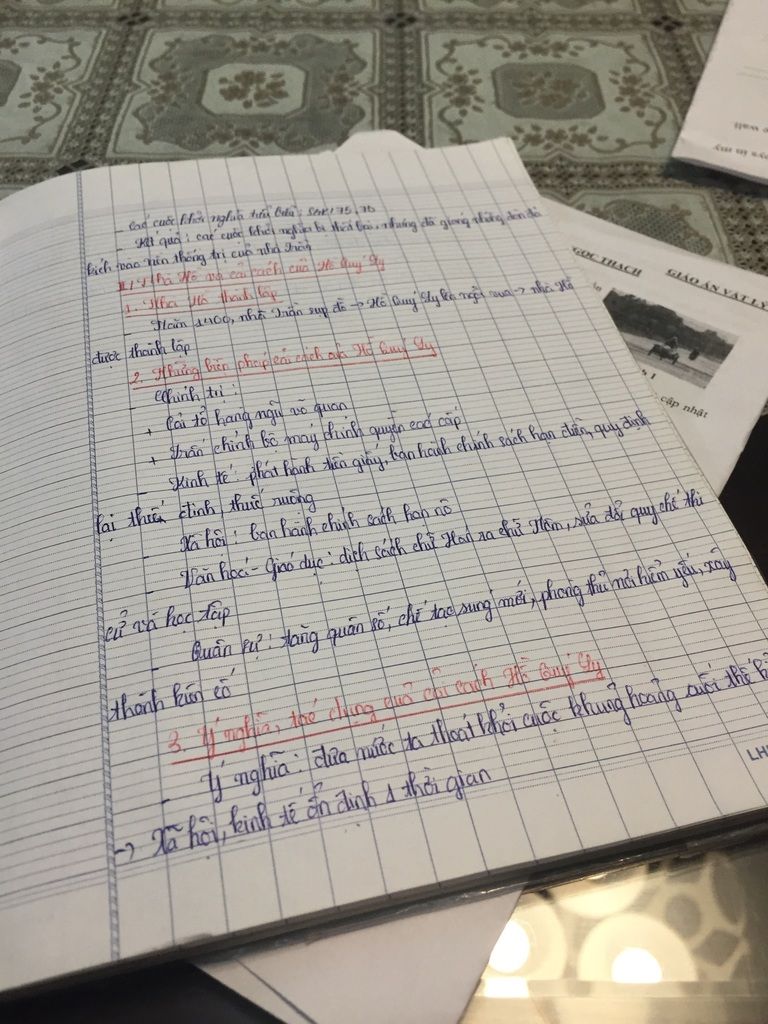 - Các cuộc khởi nghĩa tiêu biểu: SGK/75, 76
- Kết quả: các cuộc khởi nghĩa bị thất bại, nhưng đã giáng những đòn đả
kích vào nền thống trị của nhà Trần
II/ Nhà Hồ và cải cách của Hồ Quý Ly
1. Nhà Hồ thành lập
- Năm 1400, nhà Trần sụp đổ → Hồ Quý Ly lên ngôi vua → nhà Hồ
được thành lập
2. Những biện pháp cải cách của Hồ Quý Ly
- Chính trị:
+ Cải tổ hàng ngũ võ quan
+ Trấn chỉnh bộ máy chính quyền các cấp
- Kinh tế: phát hành tiền giấy, ban hành chính sách hạn điền, quy định
lại thuế đinh thuế ruộng
- Xã hội: ban hành chính sách hạn nô
- Văn hoá - Giáo dục: dịch sách chữ Hán ra chữ Nôm, sửa đổi quy chế thi
cử và học tập
- Quân sự: tăng quân số, chế tạo súng mới, phòng thủ nơi hiểm yếu, xây
thành kiên cố
3. Ý nghĩa, tác dụng của cải cách Hồ Quý Ly
- Ý nghĩa: đưa nước ta thoát khỏi cuộc khủng hoảng cuối thế k
→ Xã hội, kinh tế ổn định 1 thời gian
LH
NGỌC THẠCH GIÁO ÁN VẬT LÝ
cập nhật
wall